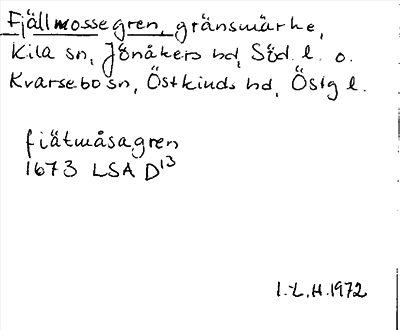 Fjällmossegren, gränsmärke,
Kila sn, Jönåkers hd, Söd. l. o.
Kvarsebo sn, Östkinds hd, Östg l.
fiätmåsagren
1673 LSA D13
I.L.H. 1972